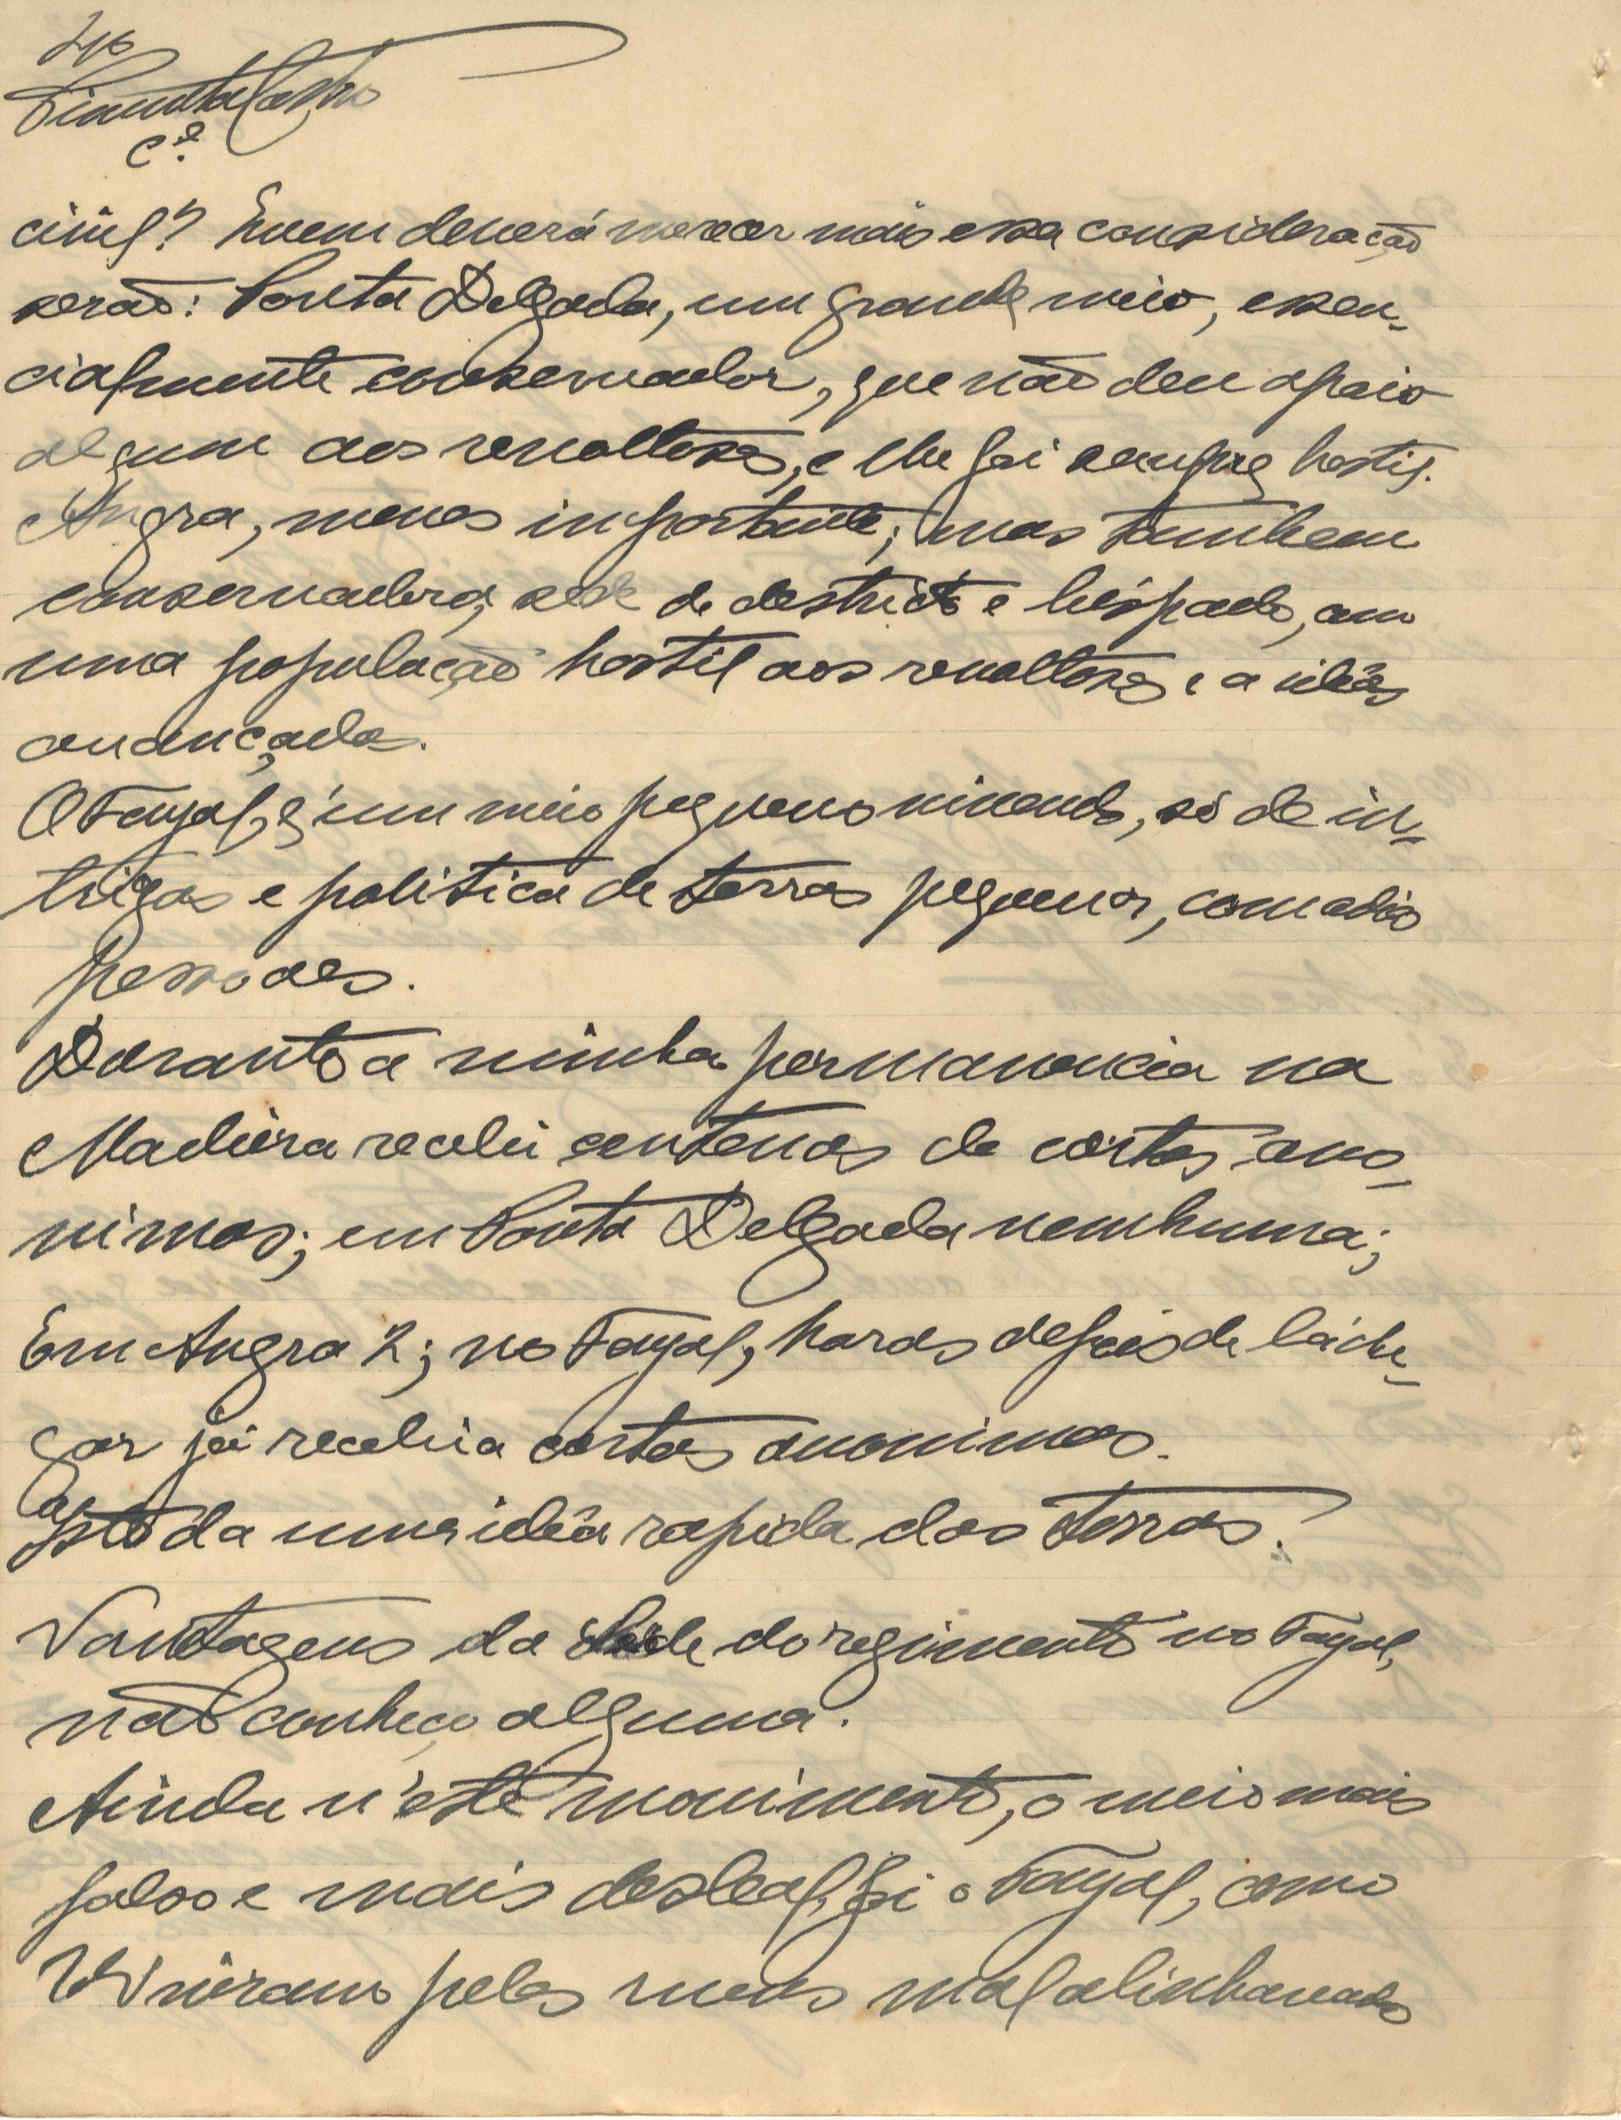 Pimenta Castro
C.el
civil? Quem deverá merecer mais essa consideração
serão: Ponta Delgada, um grande meio, essen-
cialmente conservador, que não deu apoio
algum aos revoltosos, e lhe foi sempre hostil.
Angra, menos importante, mas tambem
conservadora, sede de destricto e bispado, com
uma população hostil aos revoltosos e a idêas
avançadas.
O Fayal, é um meio pequeno vivendo, só de in-
trigas e politica de terras pequenas, com odios
pessoaes.
Durante a minha permanencia na
Madeira recebi centenas de cartas ano-
nimas; em Ponta Delgada nenhuma;
Em Angra 2; no Fayal, horas depois de lá che-
gar já recebia cartas anonimas.
Isto da uma idêa rapida das terras.
Vantagens da séde do regimento no Fayal,
não conheço alguma.
Ainda n'este movimento, o meio mais
falso e mais desleal, foi o Fayal, como
V. Ex.ª viram pelos meus mal alinhavados